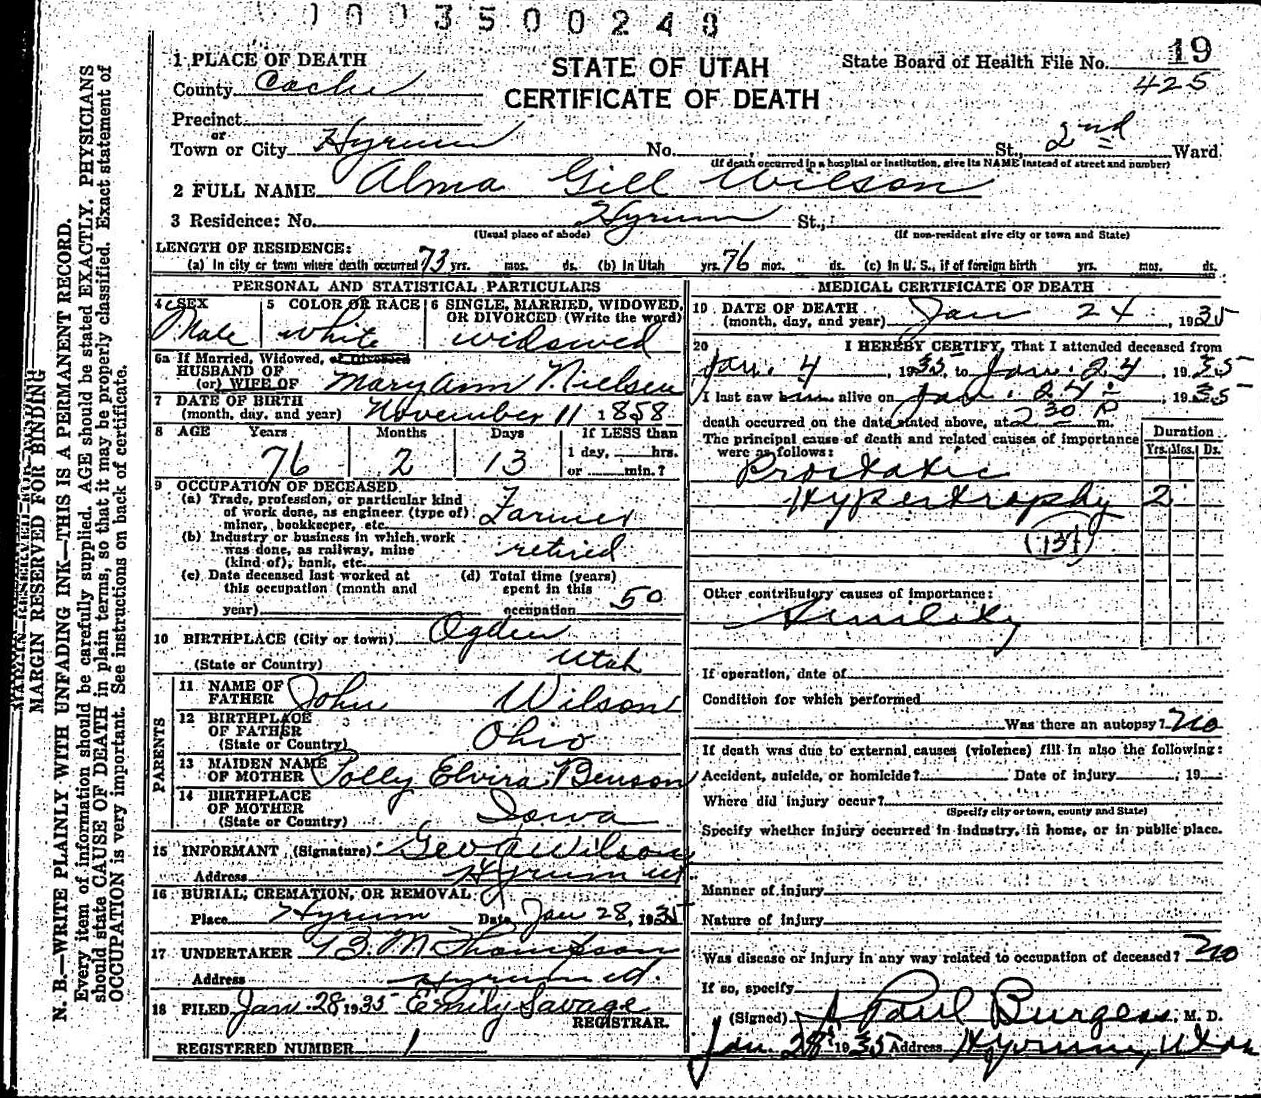 0003500248
19
1 PLACE OF DEATH
STATE OF UTAH
CERTIFICATE OF DEATH
State Board of Health File No.
425
County Cache
Precinct
or
Town or City Hyrum No. St., 2nd Ward
(If death occurred in a hospital or institution, give its NAME instead of street and number)
2 FULL NAME Alma Gill Wilson
3 Residence: No. Hyrum St.,
(Usual place of abode) (If non-resident give city or town and State)
LENGTH OF RESIDENCE:
(a) In city or town where death occurred 73 yrs. mos. ds. (b) In Utah yrs. 76 mos. ds. (c) In U. S., if of foreign birth yrs. mos. ds.
PERSONAL AND STATISTICAL PARTICULARS
4 SEX
Male
5 COLOR OR RACE
white
6 SINGLE, MARRIED, WIDOWED, OR DIVORCED (Write the word)
widowed
6a If Married, Widowed, or Divorced
HUSBAND OF
(or) WIFE OF Mary Ann Nielsen
7 DATE OF BIRTH
(month, day, and year) November 11 1858
8 AGE Years Months Days If LESS than
76 2 13 1 day, hrs.
or min.?
9 OCCUPATION OF DECEASED
(a) Trade, profession, or particular kind
of work done, as engineer (type of)
minor, bookkeeper, etc. Farmer
(b) Industry or business in which work
was done, as railway, mine
(kind of), bank, etc. retired
(c) Date deceased last worked at
this occupation (month and
year)
(d) Total time (years)
spent in this
occupation 50
10 BIRTHPLACE (City or town) Ogden
(State or Country) Utah
PARENTS
11 NAME OF
FATHER John Wilson
12 BIRTHPLACE
OF FATHER
(State or Country) Ohio
13 MAIDEN NAME
OF MOTHER Polly Elvira Benson
14 BIRTHPLACE
OF MOTHER
(State or Country) Iowa
15 INFORMANT (Signature) Geo A Wilson
Address Hyrum Ut
16 BURIAL, CREMATION, OR REMOVAL
Place Hyrum Date Jan 28, 1935
17 UNDERTAKER B. M. Thompson
Address Hyrum Ut.
18 FILED Jan 28 1935 Emily Savage
REGISTRAR.
REGISTERED NUMBER 1
MEDICAL CERTIFICATE OF DEATH
19 DATE OF DEATH
(month, day, and year) Jan 24, 1935
20 I HEREBY CERTIFY, That I attended deceased from
Jan. 4, 1935, to Jan. 24, 1935
I last saw him alive on Jan. 24, 1935
death occurred on the date stated above, at 2 30 P m.
The principal cause of death and related causes of importance
were as follows:
Duration
Yrs. Mos. Ds.
Prostatic
Hypertrophy 2
(137)
Other contributory causes of importance:
Senility
If operation, date of
Condition for which performed
Was there an autopsy? no
If death was due to external causes (violence) fill in also the following:
Accident, suicide, or homicide? Date of injury , 19
Where did injury occur?
(Specify city or town, county and State)
Specify whether injury occurred in industry, in home, or in public place.
Manner of injury
Nature of injury
Was disease or injury in any way related to occupation of deceased? no
If so, specify
(Signed) Paul Burgess, M. D.
Jan. 28 1935 Address Hyrum, Utah
MARGIN RESERVED FOR BINDING
N. B.—WRITE PLAINLY WITH UNFADING INK—THIS IS A PERMANENT RECORD.
Every item of information should be carefully supplied. AGE should be stated EXACTLY. PHYSICIANS
should state CAUSE OF DEATH in plain terms, so that it may be properly classified. Exact statement of
OCCUPATION is very important. See instructions on back of certificate.